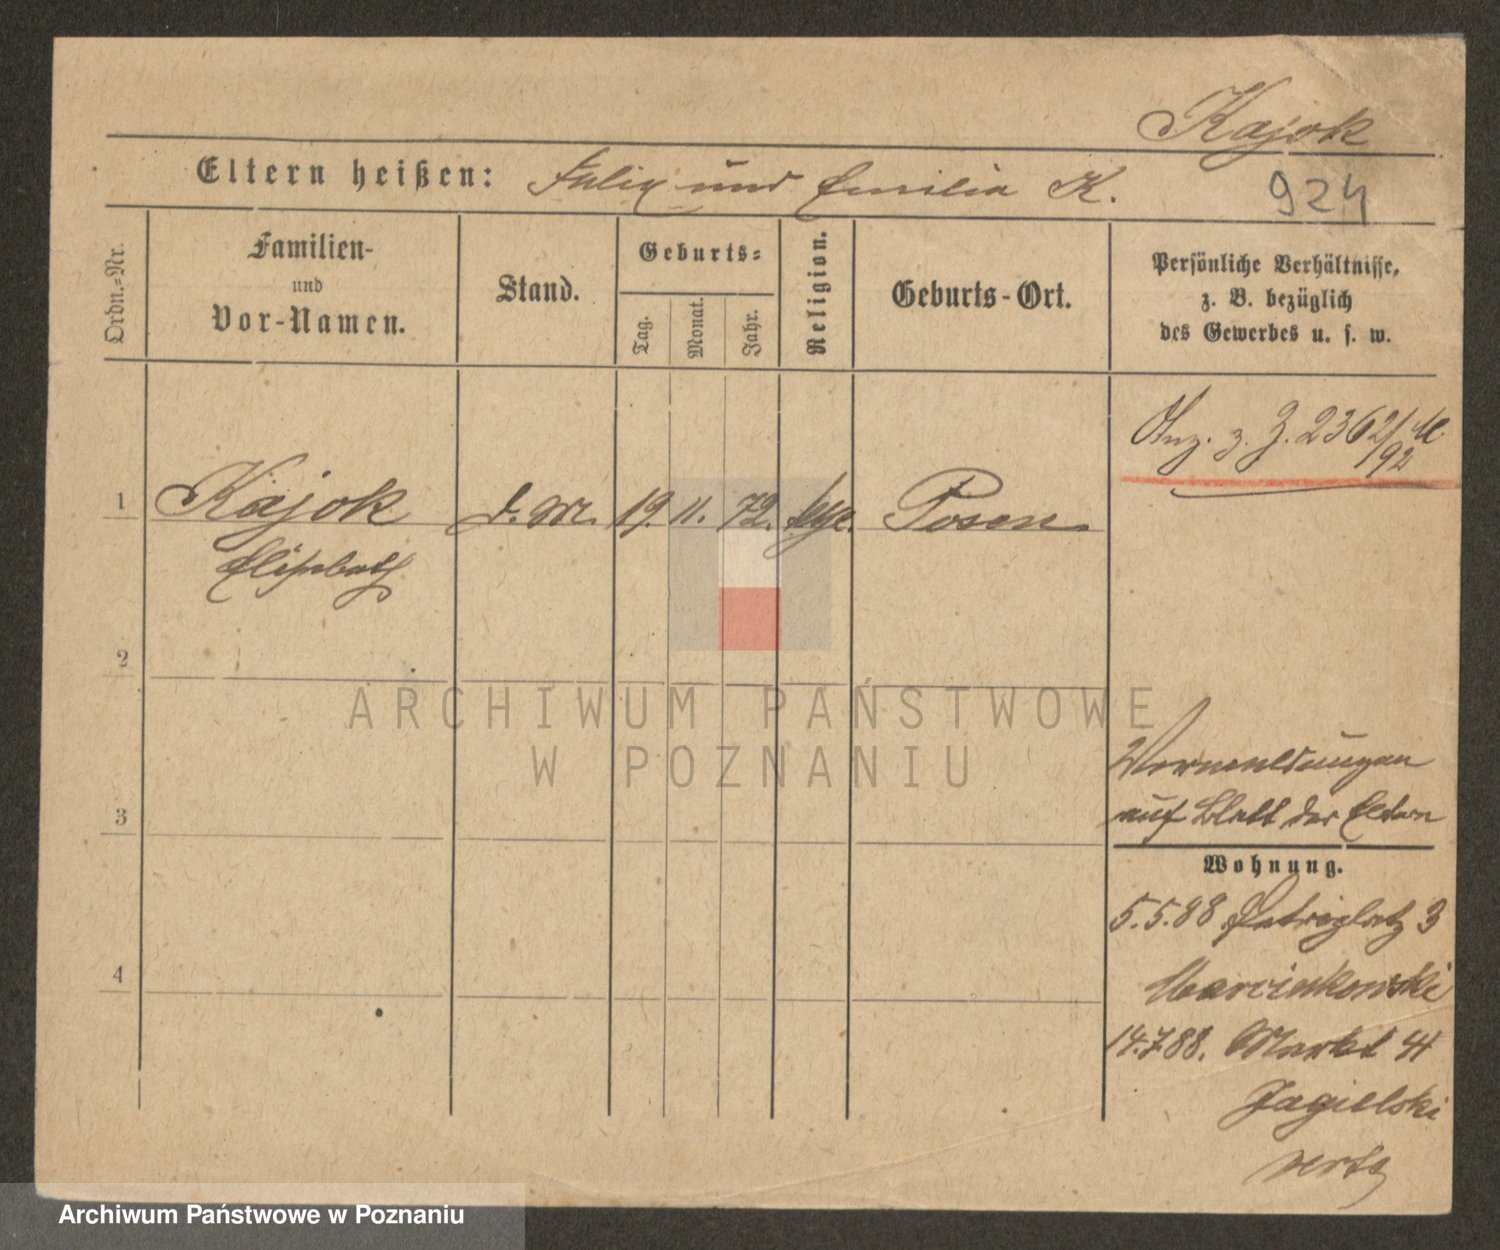 Kajok
Eltern heißen: Felix und Emilia K.
924
Ordn.-Nr.
Familien-
und
Vor-Namen.
Stand.
Geburts-
Tag.
Monat.
Jahr.
Religion.
Geburts-Ort.
Persönliche Verhältnisse,
z. B. bezüglich
des Gewerbes u. s. w.
Anz. z. Z. 2362/92
1 Kajok d. M. 19. 11. 72. Posen
Elisabeth
2
3
4
Vormeldungen
auf Blatt der Eltern
Wohnung.
5.5.88 Petriplatz 3
Marcinkowski
14.7.88. Markt 41
Jagielski
verte
ARCHIWUM PAŃSTWOWE
W POZNANIU
Archiwum Państwowe w Poznaniu